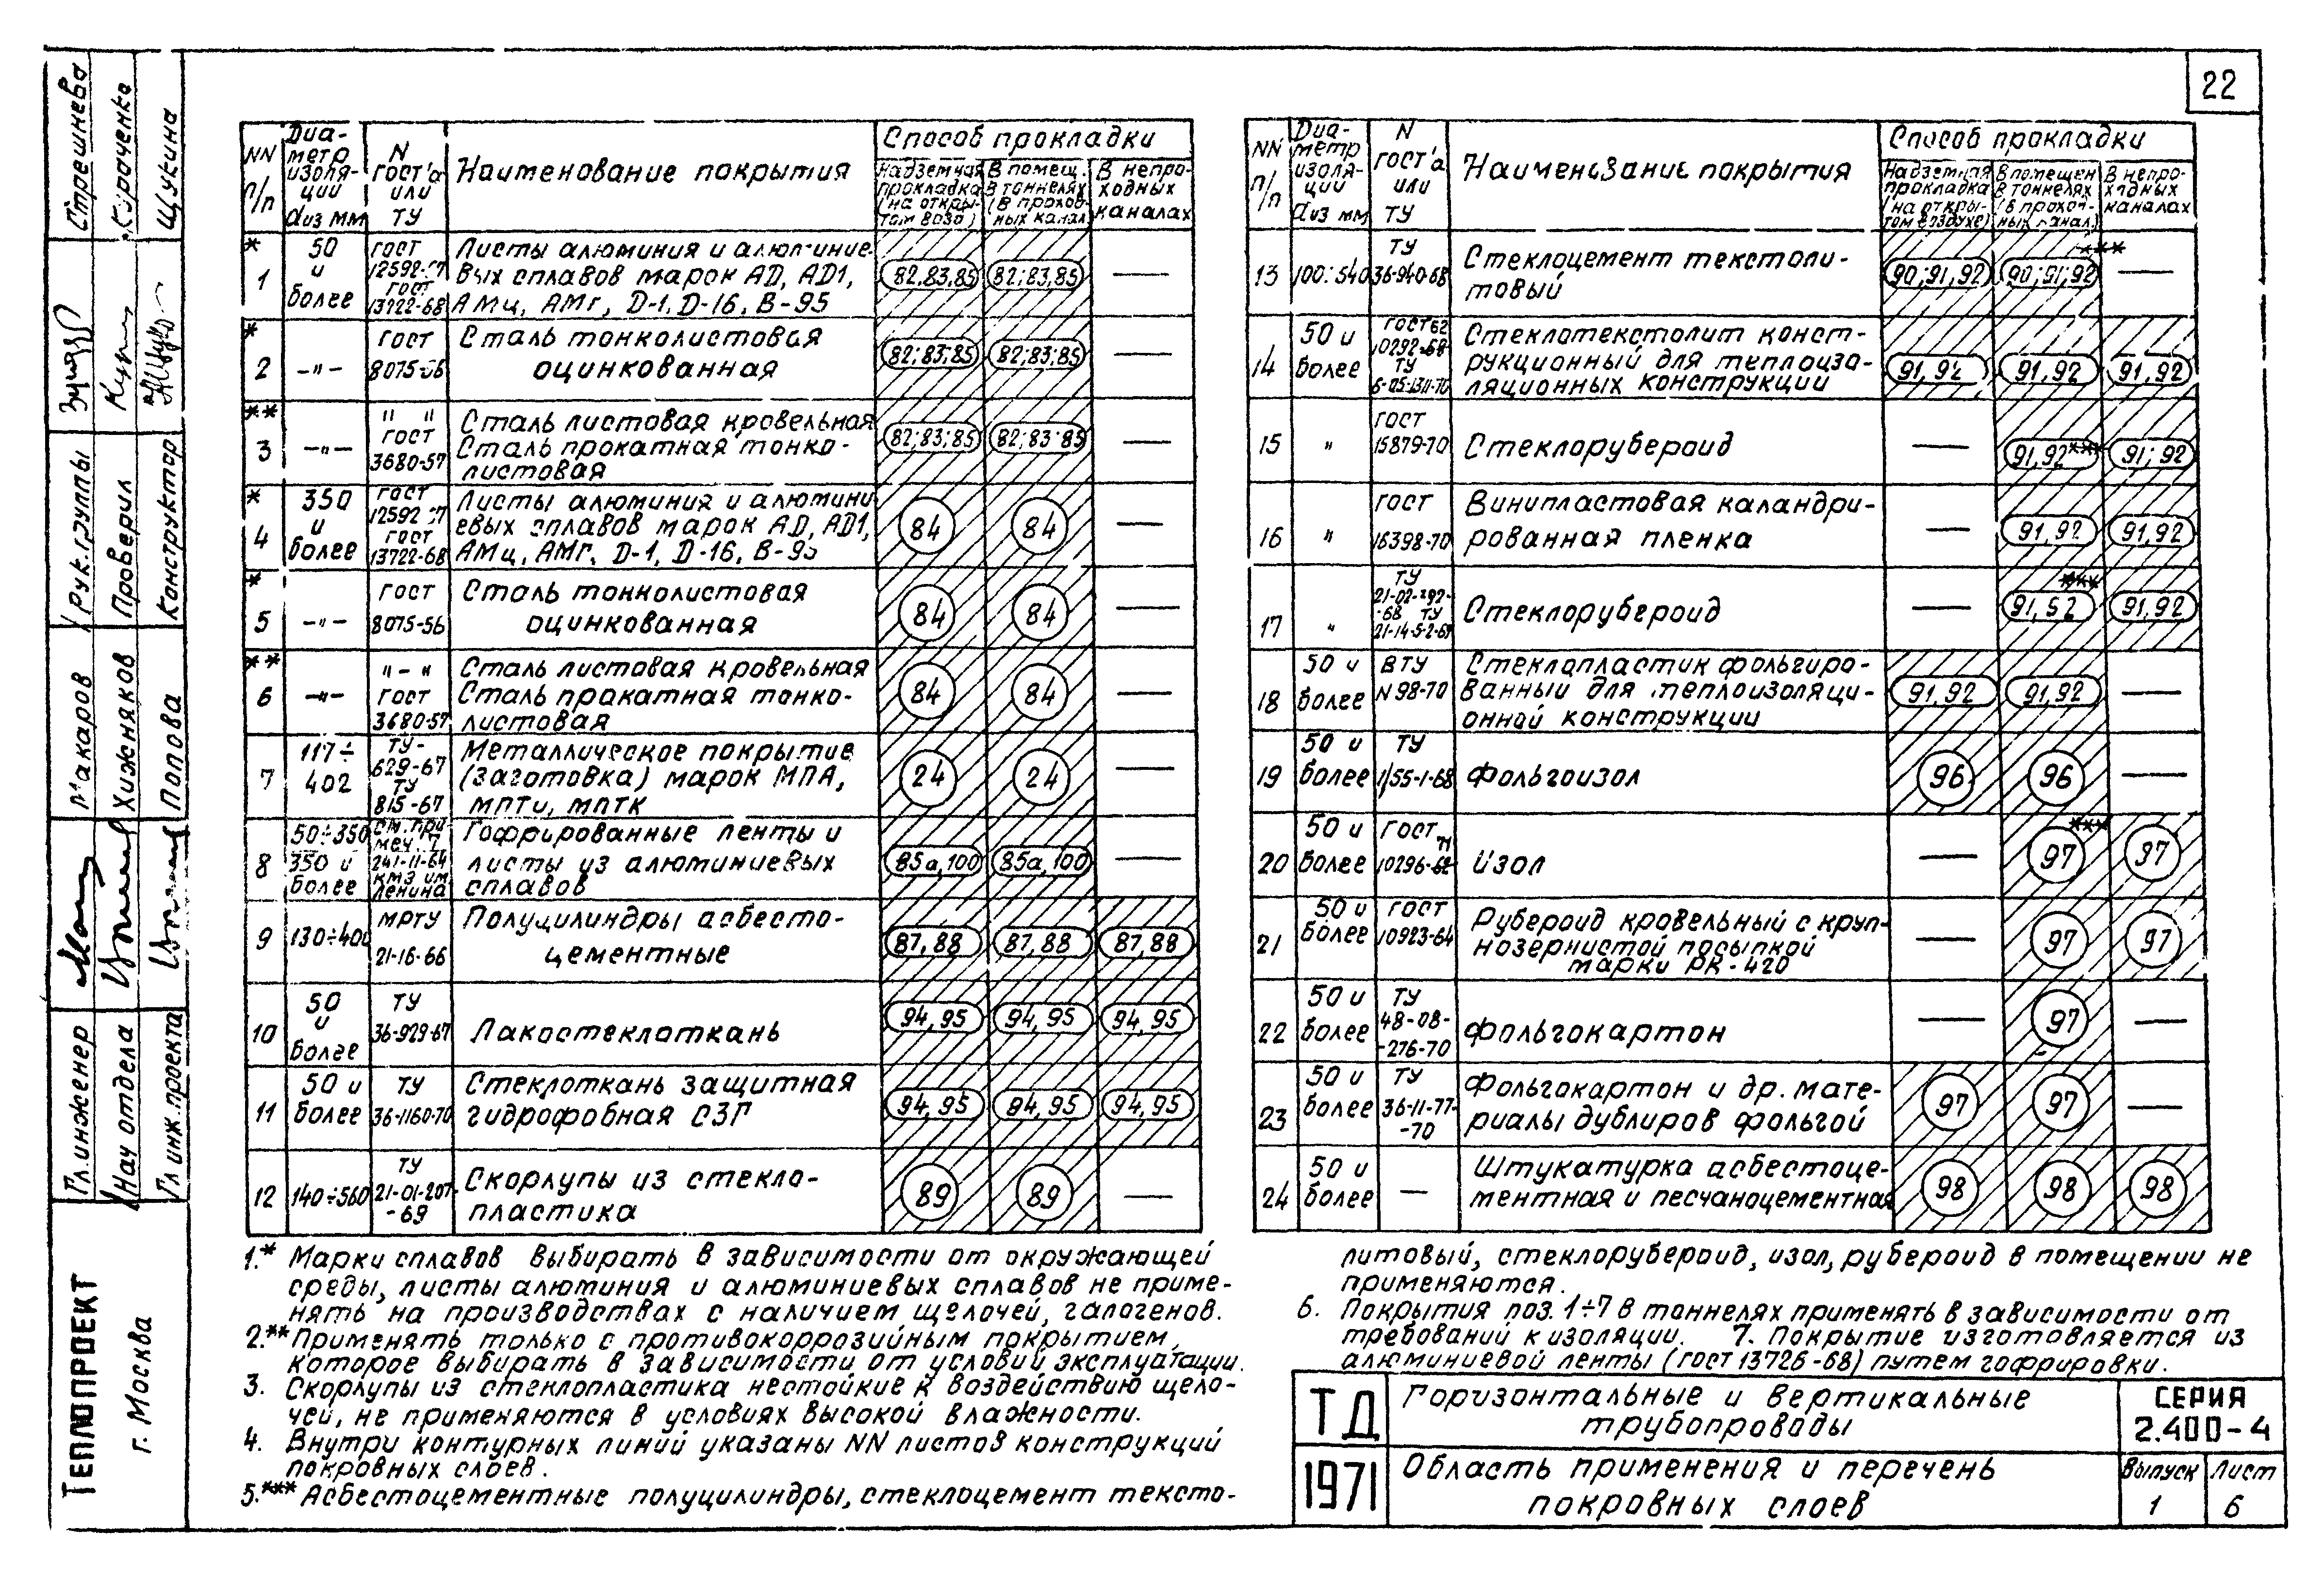 22
NN п/п
Диаметр изоляции dиз мм
N гост'а или ТУ
Наименование покрытия
Способ прокладки
Надземная прокладка (на откры-том возд)
В помещ. В тоннелях (в проход-ных канал
В непро-ходных каналах
* 1
50 и более
гост 12592-67 гост 13722-68
Листы алюминия и алюминие-
вых сплавов марок АD, АD1,
АМц, АМг, D-1, D-16, В-95
82,83,85
82;83,85
—
* 2
—"—
гост 8075-56
Сталь тонколистовая
оцинкованная
82;83;85
82;83;85
—
** 3
—"—
" "
гост 3680-57
Сталь листовая кровельная
Сталь прокатная тонко-
листовая
82;83;85
82;83;85
—
* 4
350 и более
гост 12592-67 гост 13722-68
Листы алюминия и алюмини
евых сплавов марок АD, АD1,
АМц, АМг, D-1, D-16, В-95
84
84
—
* 5
—"—
гост 8075-56
Сталь тонколистовая
оцинкованная
84
84
—
** 6
—"—
"—"
гост 3680-57
Сталь листовая кровельная
Сталь прокатная тонко-
листовая
84
84
—
7
117÷402
ТУ-629-67 ТУ 815-67
Металлическое покрытие
(заготовка) марок МПА,
МПТи, МПТК
24
24
—
8
50÷350 350 и более
см. при меч. 7 241-11-64 КМЗ им Ленина
Гофрированные ленты и
листы из алюминиевых
сплавов
85а,100
85а,100
—
9
130÷400
МРТУ 21-16-66
Полуцилиндры асбесто-
цементные
87,88
87,88
87,88
10
50 и более
ТУ 36-929-67
Лакостеклоткань
94,95
94,95
94,95
11
50 и более
ТУ 36-1160-70
Стеклоткань защитная
гидрофобная СЗГ
94,95
94,95
94,95
12
140÷560
ТУ 21-01-207-69
Скорлупы из стекло-
пластика
89
89
—
NN п/п
Диаметр изоляции dиз мм
N гост'а или ТУ
Наименование покрытия
Способ прокладки
Надземная прокладка (на откры-том воздухе)
В помещен В тоннелях (в проход-ных канал.)
В непро-ходных каналах
13
100÷540
ТУ 36-940-68
Стеклоцемент тексто­ли-
товый
90;91,92
90;91;92 ***
—
14
50 и более
гост 62 10292-68 ТУ 6-05-1311-70
Стеклотекстолит конст-
рукционный для теплоизо-
ляционных конструкции
91,92
91,92
91,92
15
"
гост 15879-70
Стеклорубероид
—
91,92***
91;92
16
"
гост 16398-70
Винипластовая каландри-
рованная пленка
—
91,92
91,92
17
"
ТУ 21-02-292-68 ТУ 21-14-5-2-69
Стеклорубероид
—
91,92 ***
91,92
18
50 и более
ВТУ N98-70
Стеклопластик фольгиро-
ванный для теплоизоляци-
онной конструкции
91,92
91,92
—
19
50 и более
ТУ 1/55-1-68
Фольгоизол
96
96
—
20
50 и более
гост 71 10296-62
Изол
—
97 ***
97
21
50 и более
гост 10923-64
Рубероид кровельный с круп-
нозернистой посыпкой
марки РК-420
—
97
97
22
50 и более
ТУ 48-08-276-70
Фольгокартон
—
97
—
23
50 и более
ТУ 36-11-77-70
Фольгокартон и др. мате-
риалы дублиров фольгой
97
97
—
24
50 и более
—
Штукатурка асбестоце-
ментная и песчаноцементная
98
98
98
1.* Марки сплавов выбирать в зависимости от окружающей
среды, листы алюминия и алюминиевых сплавов не приме-
нять на производствах с наличием щелочей, галогенов.
2.** Применять только с противокоррозийным покрытием,
которое выбирать в зависимости от условий эксплуатации.
3. Скорлупы из стеклопластика нестойкие к воздействию щело-
чей, не применяются в условиях высокой влажности.
4. Внутри контурных линий указаны NN листов конструкций
покровных слоев.
5.*** Асбестоцементные полуцилиндры, стеклоцемент тексто-
литовый, стеклорубероид, изол, рубероид в помещении не
применяются.
6. Покрытия поз. 1÷7 в тоннелях применять в зависимости от
требований к изоляции. 7. Покрытие изготовляется из
алюминиевой ленты (гост 13726-68) путем гофрировки.
ТД
1971
Горизонтальные и вертикальные
трубопроводы
Область применения и перечень
покровных слоев
СЕРИЯ
2.400-4
Выпуск
1
Лист
6
Стрешнева
Куроченко
Щукина
рук. группы
Проверил
Конструктор
Макаров
Хижняков
Попова
Гл. инженер
Нач отдела
Гл инж. проекта
ТЕПЛОПРОЕКТ
г. Москва